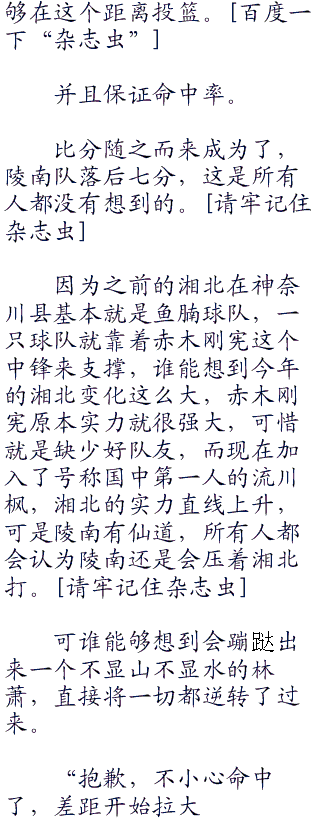 够在这个距离投篮。[百度一
下“杂志虫”]
并且保证命中率。
比分随之而来成为了，
陵南队落后七分，这是所有
人都没有想到的。[请牢记住
杂志虫]
因为之前的湘北在神奈
川县基本就是鱼腩球队，一
只球队就靠着赤木刚宪这个
中锋来支撑，谁能想到今年
的湘北变化这么大，赤木刚
宪原本实力就很强大，可惜
就是缺少好队友，而现在加
入了号称国中第一人的流川
枫，湘北的实力直线上升，
可是陵南有仙道，所有人都
会认为陵南还是会压着湘北
打。[请牢记住杂志虫]
可谁能够想到会蹦跶出
来一个不显山不显水的林
萧，直接将一切都逆转了过
来。
“抱歉，不小心命中
了，差距开始拉大